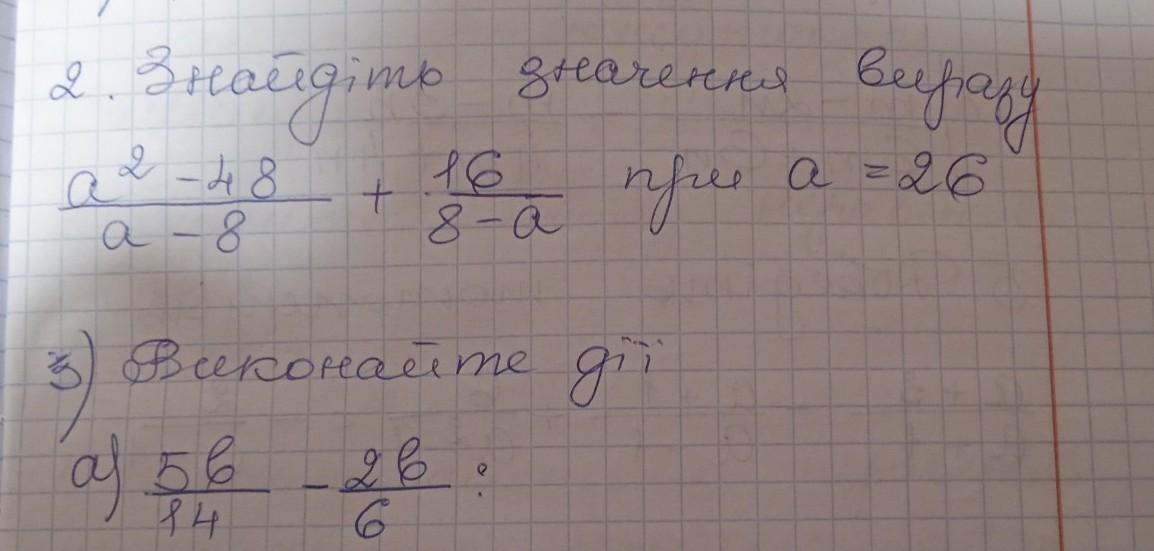 2. Знайдіть значення виразу
a² - 48 / a - 8 + 16 / 8 - a при a = 26
3) Виконайте дії
а) 5в / 14 - 2в / 6 ;